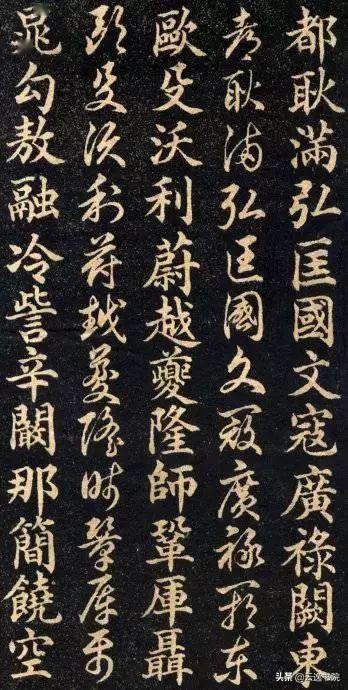 都耿滿弘匡國文寇廣祿闕東
都耿滿弘匡國文寇廣祿闕東
歐殳沃利蔚越夔隆師鞏厙聶
歐殳沃利蔚越夔隆師鞏厙聶
晁勾敖融冷訾辛闞那簡饒空
头条 @云逸书院